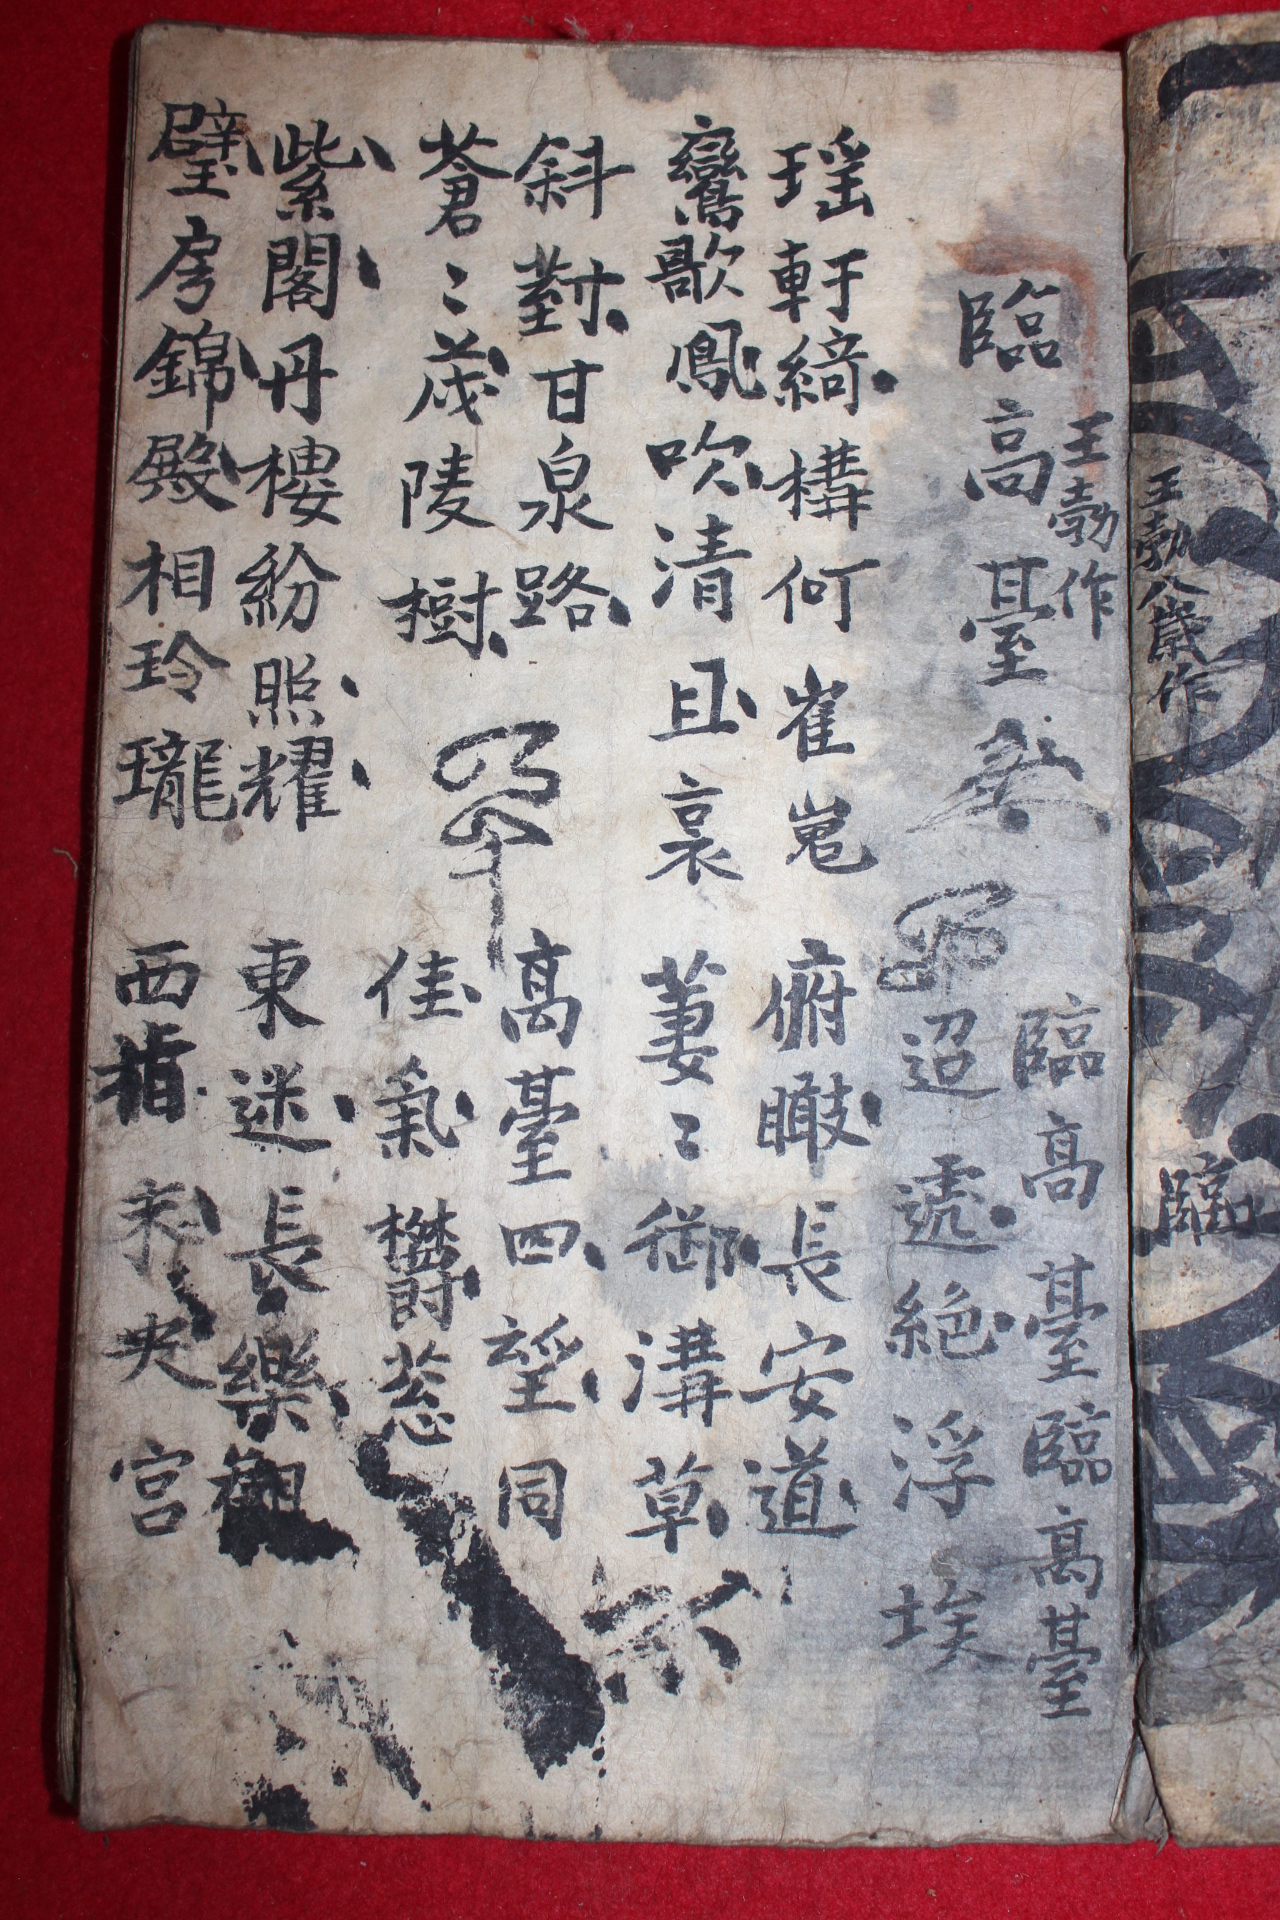 王勃八歲作
臨
王勃作
臨高臺
臨高臺臨高臺
迢遞絶浮埃
瑶軒綺構何崔嵬
鸞歌鳳吹清且哀
俯瞰長安道
萋〻御溝草
斜對甘泉路
蒼〻茂陵樹
高臺四望同
佳氣鬱葱
紫閣丹樓紛照耀
璧房錦殿相玲瓏
東迷長樂觀
西指未央宮